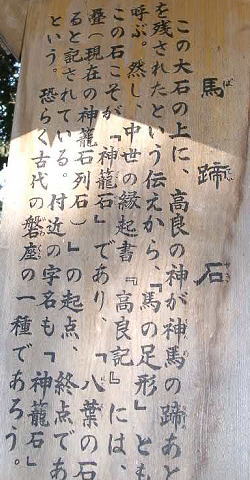 馬蹄石
ば てい せき
この大石の上に、高良の神が神馬の蹄あと
を残されたという伝えから、「馬の足形」とも
呼ぶ。然し、中世の縁起書『高良記』には、
この石こそが「神籠石」であり、「八葉の石
畳（現在の神籠石列石）」の起点、終点であ
ると記されている。付近の字名も「神籠石」
という。恐らく古代の磐座の一種であろう。